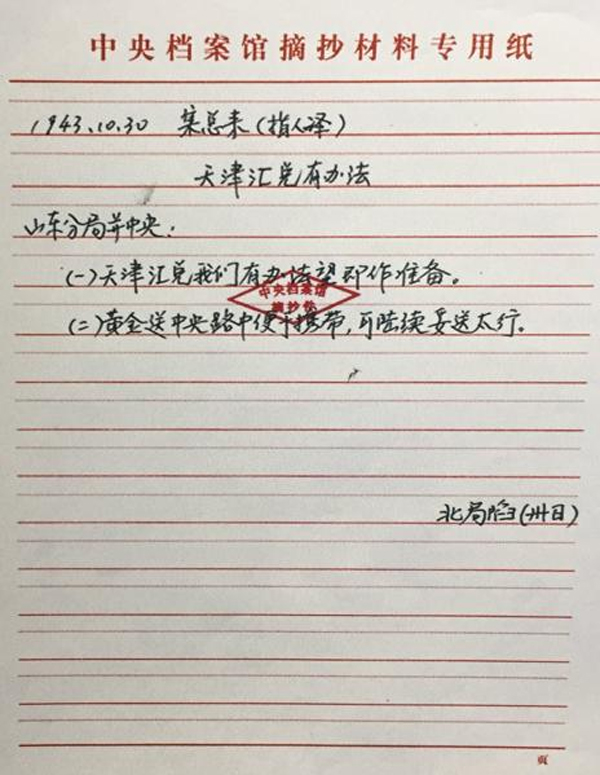 中央档案馆摘抄材料专用纸
1943.10.30 集总来(指人译)
天津汇兑有办法
山东分局并中央：
(一)天津汇兑我们有办法望即作准备。
(二)黄金送中央路中便于携带,可陆续妥送太行。
中央档案馆
摘抄件
北局 (卅日)
页